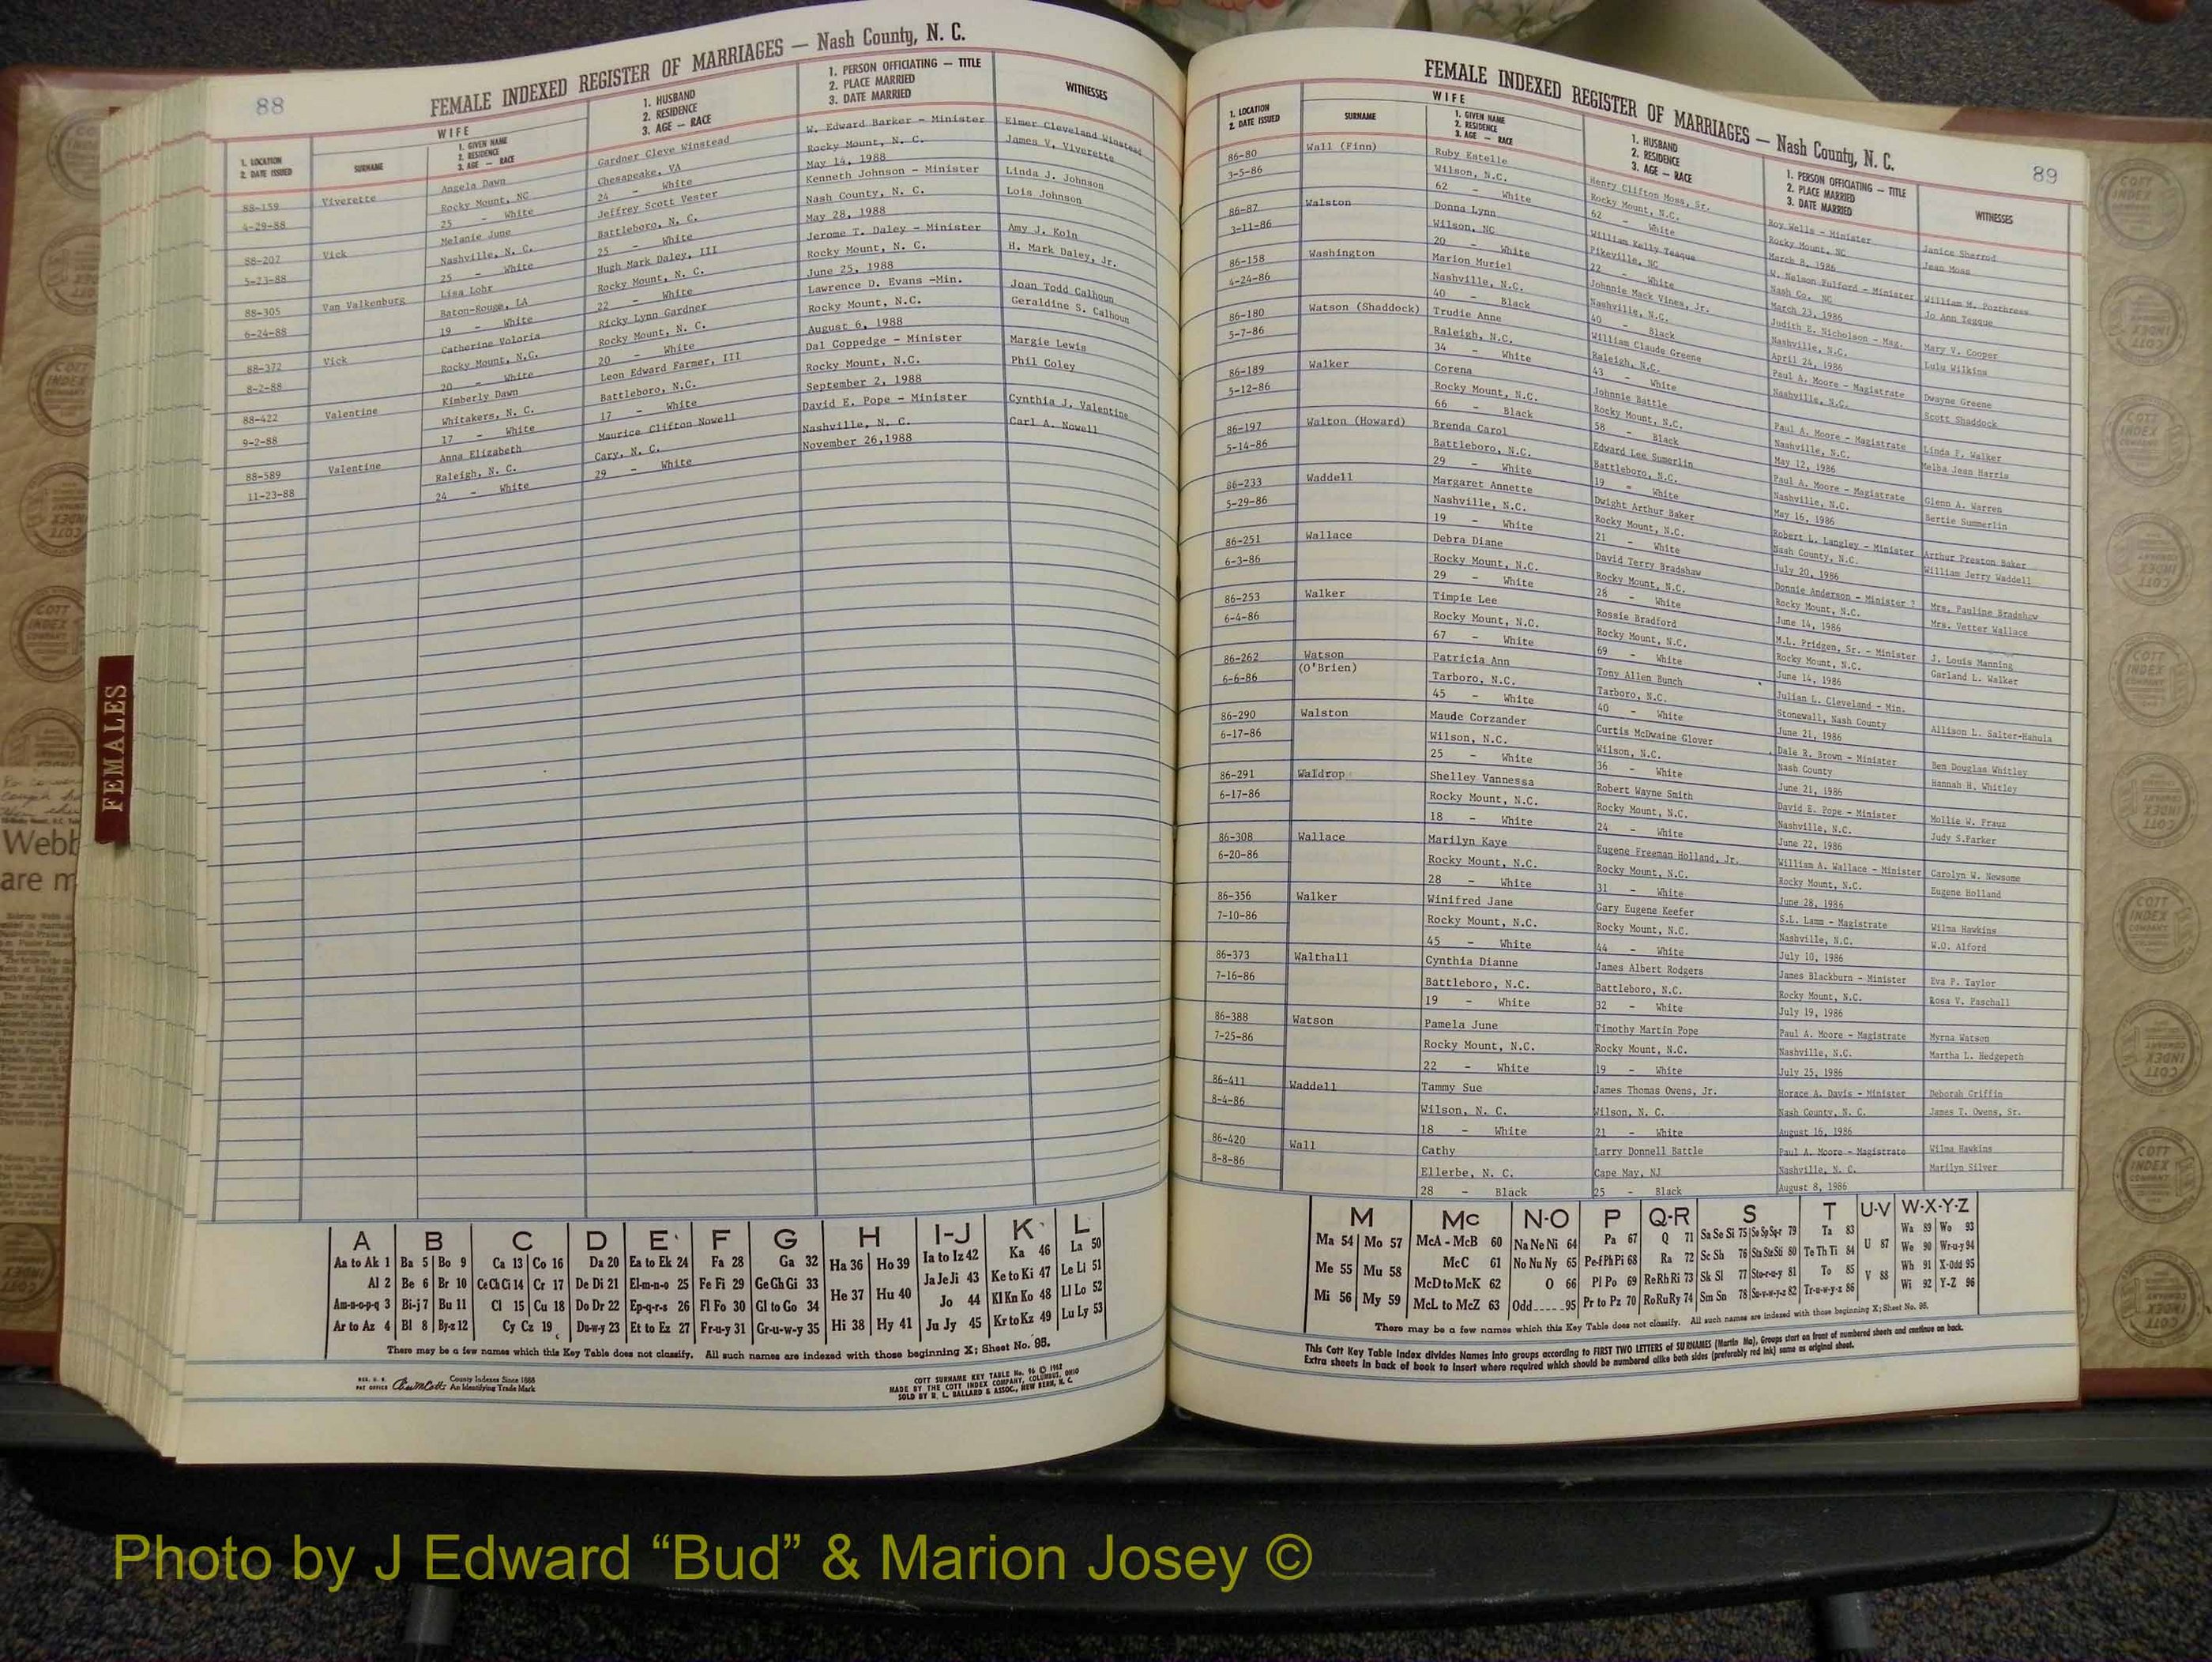 88
FEMALE INDEXED REGISTER OF MARRIAGES — Nash County, N. C.
1. LOCATION
2. DATE ISSUED
WIFE
SURNAME
1. GIVEN NAME
2. RESIDENCE
3. AGE — RACE
1. HUSBAND
2. RESIDENCE
3. AGE — RACE
1. PERSON OFFICIATING — TITLE
2. PLACE MARRIED
3. DATE MARRIED
WITNESSES
88-159 Viverette Angela Dawn Gardner Cleve Winstead W. Edward Barker - Minister Elmer Cleveland Winstead
4-29-88 Rocky Mount, NC Chesapeake, VA Rocky Mount, N. C. James V. Viverette
25 - White 24 - White May 14, 1988
88-207 Vick Melanie June Jeffrey Scott Vester Kenneth Johnson - Minister Linda J. Johnson
5-23-88 Nashville, N. C. Battleboro, N. C. Nash County, N. C. Lois Johnson
25 - White 25 - White May 28, 1988
88-305 Van Valkenburg Lisa Lohr Hugh Mark Daley, III Jerome T. Daley - Minister Amy J. Koln
6-24-88 Baton-Rouge, LA Rocky Mount, N. C. Rocky Mount, N. C. H. Mark Daley, Jr.
19 - White 22 - White June 25, 1988
88-372 Vick Catherine Valoria Ricky Lynn Gardner Lawrence D. Evans -Min. Joan Todd Calhoun
8-2-88 Rocky Mount, N.C. Rocky Mount, N. C. Rocky Mount, N.C. Geraldine S. Calhoun
20 - White 20 - White August 6, 1988
88-422 Valentine Kimberly Dawn Leon Edward Farmer, III Dal Coppedge - Minister Margie Lewis
9-2-88 Whitakers, N. C. Battleboro, N.C. Rocky Mount, N.C. Phil Coley
17 - White 17 - White September 2, 1988
88-589 Valentine Anna Elizabeth Maurice Clifton Nowell David E. Pope - Minister Cynthia J. Valentine
11-23-88 Raleigh, N. C. Cary, N. C. Nashville, N. C. Carl A. Nowell
24 - White 29 - White November 26,1988
A B C D E F G H I-J K L
Aa to Ak 1 Ba 5 Bo 9 Ca 13 Co 16 Da 20 Ea to Ek 24 Fa 28 Ga 32 Ha 36 Ho 39 Ia to Iz 42 Ka 46 La 50
Al 2 Be 6 Br 10 Ce Ch Ci 14 Cr 17 De Di 21 El-m-n-o 25 Fe Fi 29 Ge Gh Gi 33 He 37 Hu 40 Ja Je Ji 43 Ke to Ki 47 Le Li 51
Am-n-o-p-q 3 Bi-j 7 Bu 11 Cl 15 Cu 18 Do Dr 22 Ep-q-r-s 26 Fl Fo 30 Gl to Go 34 Jo 44 Kl Kn Ko 48 Ll Lo 52
Ar to Az 4 Bl 8 By-z 12 Cy Cz 19 Du-w-y 23 Et to Ez 27 Fr-u-y 31 Gr-u-w-y 35 Hi 38 Hy 41 Ju Jy 45 Kr to Kz 49 Lu Ly 53
There may be a few names which this Key Table does not classify. All such names are indexed with those beginning X; Sheet No. 95.
REG. U. S.
PAT OFFICE
County Indexes Since 1888
An Identifying Trade Mark
COTT SURNAME KEY TABLE No. 96 © 1962
MADE BY THE COTT INDEX COMPANY, COLUMBUS, OHIO
SOLD BY R. L. BALLARD & ASSOC., NEW BERN, N. C.
FEMALES
Webb
are m
89
FEMALE INDEXED REGISTER OF MARRIAGES — Nash County, N. C.
1. LOCATION
2. DATE ISSUED
WIFE
SURNAME
1. GIVEN NAME
2. RESIDENCE
3. AGE — RACE
1. HUSBAND
2. RESIDENCE
3. AGE — RACE
1. PERSON OFFICIATING — TITLE
2. PLACE MARRIED
3. DATE MARRIED
WITNESSES
86-80 Wall (Finn) Ruby Estelle Henry Clifton Moss, Sr. Roy Wells - Minister Janice Sherrod
3-5-86 Wilson, N.C. Rocky Mount, N.C. Rocky Mount, NC Jean Moss
62 - White 62 - White March 8, 1986
86-87 Walston Donna Lynn William Kelly Teague W. Nelson Fulford - Minister William M. Pozthress
3-11-86 Wilson, NC Pikeville, NC Nash Co. NC Jo Ann Teague
20 - White 22 - White March 23, 1986
86-158 Washington Marion Muriel Johnnie Mack Vines, Jr. Judith E. Nicholson - Mag. Mary V. Cooper
4-24-86 Nashville, N.C. Nashville, N.C. Nashville, N.C. Lulu Wilkins
40 - Black 40 - Black April 24, 1986
86-180 Watson (Shaddock) Trudie Anne William Claude Greene Paul A. Moore - Magistrate Dwayne Greene
5-7-86 Raleigh, N.C. Raleigh, N.C. Nashville, N.C. Scott Shaddock
34 - White 43 - White
86-189 Walker Corena Johnnie Battle Paul A. Moore - Magistrate Linda F. Walker
5-12-86 Rocky Mount, N.C. Rocky Mount, N.C. Nashville, N.C. Melba Jean Harris
66 - Black 58 - Black May 12, 1986
86-197 Walton (Howard) Brenda Carol Edward Lee Sumerlin Paul A. Moore - Magistrate Glenn A. Warren
5-14-86 Battleboro, N.C. Battleboro, N.C. Nashville, N.C. Bertie Summerlin
29 - White 19 - White May 16, 1986
86-233 Waddell Margaret Annette Dwight Arthur Baker Robert L. Langley - Minister Arthur Preston Baker
5-29-86 Nashville, N.C. Rocky Mount, N.C. Nash County, N.C. William Jerry Waddell
19 - White 21 - White July 20, 1986
86-251 Wallace Debra Diane David Terry Bradshaw Donnie Anderson - Minister ? Mrs. Pauline Bradshaw
6-3-86 Rocky Mount, N.C. Rocky Mount, N.C. Rocky Mount, N.C. Mrs. Vetter Wallace
29 - White 28 - White June 14, 1986
86-253 Walker Timpie Lee Rossie Bradford M.L. Pridgen, Sr. - Minister J. Louis Manning
6-4-86 Rocky Mount, N.C. Rocky Mount, N.C. Rocky Mount, N.C. Garland L. Walker
67 - White 69 - White June 14, 1986
86-262 Watson Patricia Ann Tony Allen Bunch Julian L. Cleveland - Min. Allison L. Salter-Hahula
6-6-86 (O'Brien) Tarboro, N.C. Tarboro, N.C. Stonewall, Nash County
45 - White 40 - White June 21, 1986
86-290 Walston Maude Corzander Curtis McDwaine Glover Dale R. Brown - Minister Ben Douglas Whitley
6-17-86 Wilson, N.C. Wilson, N.C. Nash County Hannah H. Whitley
25 - White 36 - White June 21, 1986
86-291 Waldrop Shelley Vannessa Robert Wayne Smith David E. Pope - Minister Mollie W. Frauz
6-17-86 Rocky Mount, N.C. Rocky Mount, N.C. Nashville, N.C. Judy S.Parker
18 - White 24 - White June 22, 1986
86-308 Wallace Marilyn Kaye Eugene Freeman Holland, Jr. William A. Wallace - Minister Carolyn W. Newsome
6-20-86 Rocky Mount, N.C. Rocky Mount, N.C. Rocky Mount, N.C. Eugene Holland
28 - White 31 - White June 28, 1986
86-356 Walker Winifred Jane Gary Eugene Keefer S.L. Lamm - Magistrate Wilma Hawkins
7-10-86 Rocky Mount, N.C. Rocky Mount, N.C. Nashville, N.C. W.O. Alford
45 - White 44 - White July 10, 1986
86-373 Walthall Cynthia Dianne James Albert Rodgers James Blackburn - Minister Eva P. Taylor
7-16-86 Battleboro, N.C. Battleboro, N.C. Rocky Mount, N.C. Rosa V. Paschall
19 - White 32 - White July 19, 1986
86-388 Watson Pamela June Timothy Martin Pope Paul A. Moore - Magistrate Myrna Watson
7-25-86 Rocky Mount, N.C. Rocky Mount, N.C. Nashville, N.C. Martha L. Hedgepeth
22 - White 19 - White July 25, 1986
86-411 Waddell Tammy Sue James Thomas Owens, Jr. Horace A. Davis - Minister Deborah Griffin
8-4-86 Wilson, N. C. Wilson, N. C. Nash County, N. C. James T. Owens, Sr.
18 - White 21 - White August 16, 1986
86-420 Wall Cathy Larry Donnell Battle Paul A. Moore - Magistrate Wilma Hawkins
8-8-86 Ellerbe, N. C. Cape May, NJ Nashville, N. C. Marilyn Silver
28 - Black 25 - Black August 8, 1986
M Mc N-O P Q-R S T U-V W-X-Y-Z
Ma 54 Mo 57 McA - McB 60 Na Ne Ni 64 Pa 67 Q 71 Sa Se Si 75 So Sp Sq-r 79 Ta 83 U 87 Wa 89 Wo 93
Me 55 Mu 58 McC 61 No Nu Ny 65 Pe-f Ph Pi 68 Ra 72 Sc Sh 76 Sta Ste Sti 80 Te Th Ti 84 We 90 Wr-u-y 94
McD to McK 62 O 66 Pl Po 69 Re Rh Ri 73 Sk Sl 77 Sto-r-u-y 81 To 85 V 88 Wh 91 X-Odd 95
Mi 56 My 59 McL to McZ 63 Odd 95 Pr to Pz 70 Ro Ru Ry 74 Sm Sn 78 Su-v-w-y-z 82 Tr-u-w-y-z 86 Wi 92 Y-Z 96
There may be a few names which this Key Table does not classify. All such names are indexed with those beginning X; Sheet No. 95.
This Cott Key Table Index divides Names into groups according to FIRST TWO LETTERS of SURNAMES (Martin Ma). Groups start on front of numbered sheets and continue on back.
Extra sheets in back of book to insert where required which should be numbered alike both sides (preferably red ink) same as original sheet.
Photo by J Edward “Bud” & Marion Josey ©